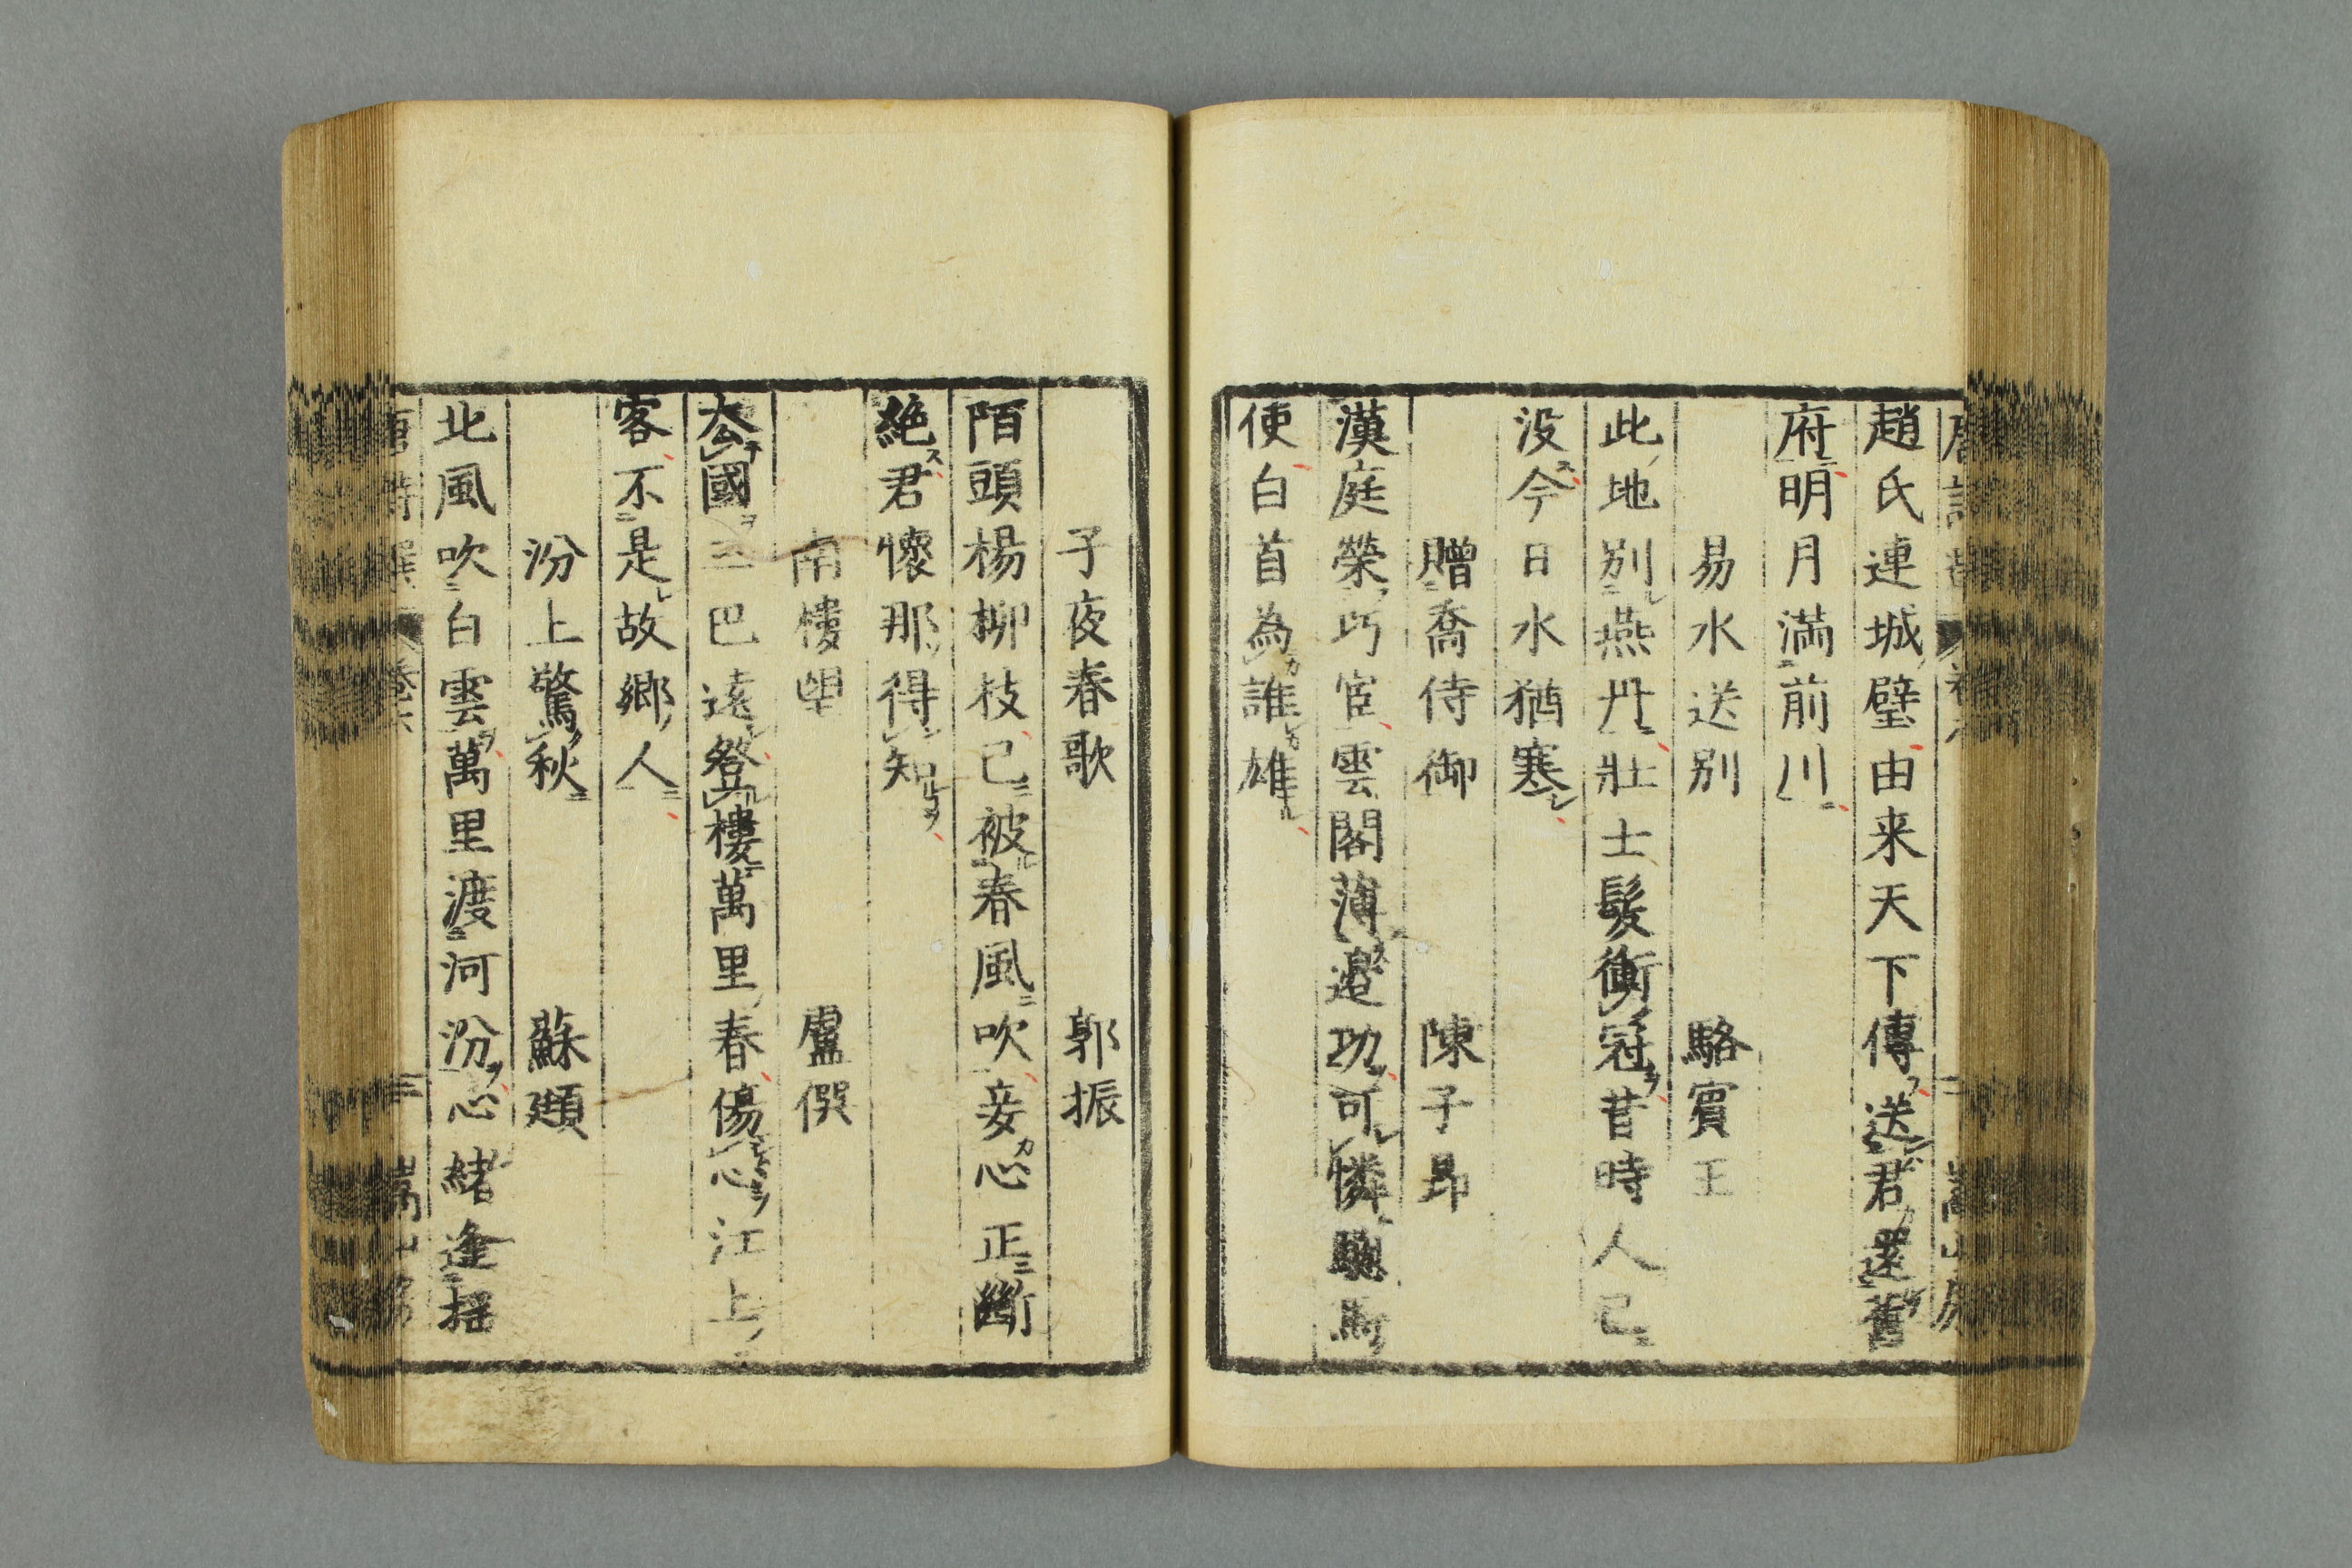 趙氏連城璧由来天下傳送君還舊
府明月満前川
易水送別 駱賓王
此地別燕丹壮士髮衝冠昔時人已
没今日水猶寒
贈喬侍御 陳子昻
漢庭榮巧宦雲閣薄邉功可憐驄馬
使白首為誰雄
子夜春歌 郭振
陌頭楊柳枝已被春風吹妾心正斷
絶君懷那得知
南樓望 盧僎
去國三巴遠登樓萬里春傷心江上
客不是故郷人
汾上驚秋 蘇頲
北風吹白雲萬里渡河汾心緒逢揺
唐詩選 巻六 三 嵩山房